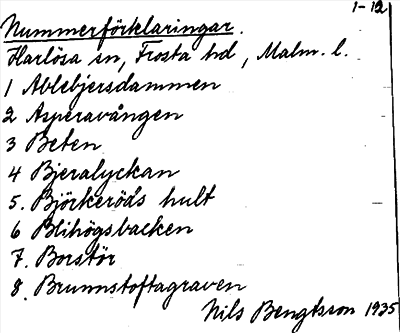 1-12
Nummerförklaringar.
Harlösa sn, Frosta hd, Malm. l.
1 Ablebjersdammen
2 Asperavången
3 Beten
4 Bjeralyckan
5. Björkeröds hult
6 Blihögsbacken
7. Borstör
8. Brunnstoftagraven
Nils Bengtsson 1935